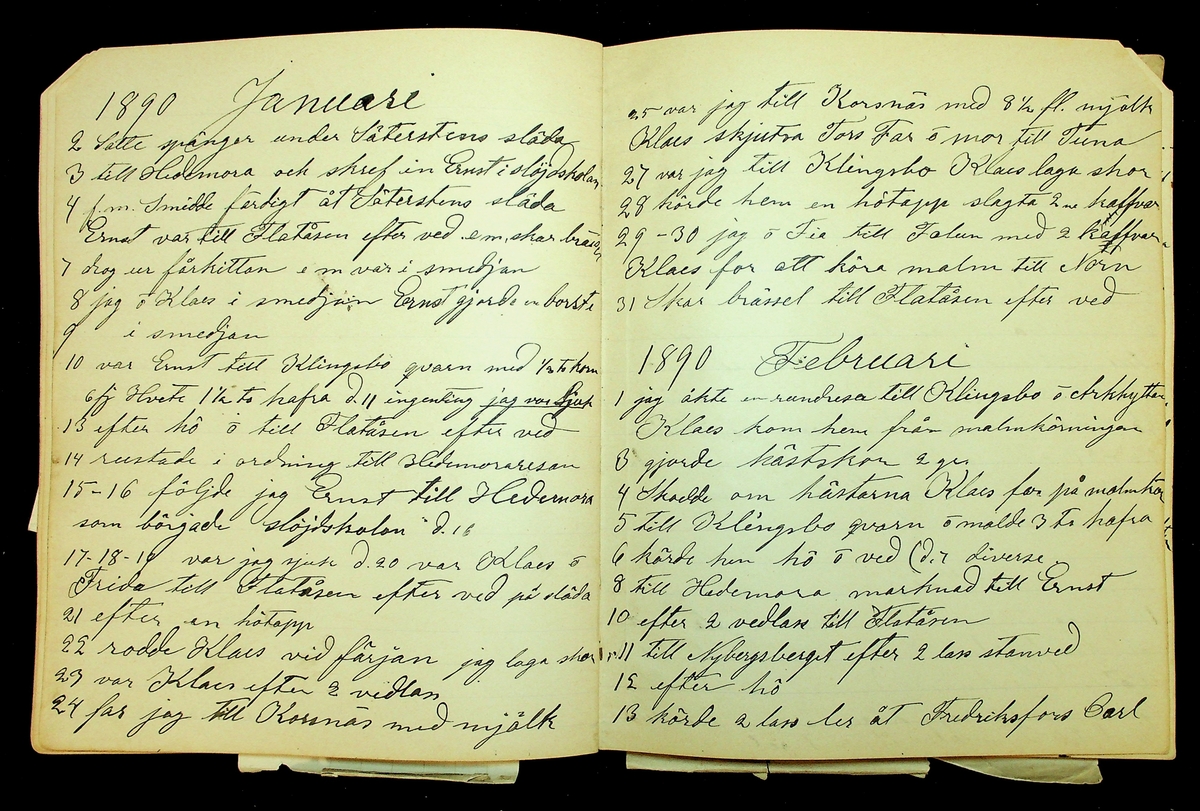 1890 Januari
2 Satte spänger under Säterstens släda
3 till Hedemora och skref in Ernst i slöjdskolan
4 f.m. Smidde färdigt åt Säterstens släda
Ernst var till Flatåsen efter ved e.m. skar
7 drog ur fårkittan e m var i smedjan
8 jag ö Klaes i smedjan Ernst gjorde en borst
9 i smedjan
10 var Ernst till Klingsbo qvarn med 1/2 to korn
6 fj Hvete 1 1/2 to hafra d. 11 ingenting jag var sjuk
13 efter hö ö till Flatåsen efter ved
14 rustade i ordning till Hedemoraresan
15-16 följde jag Ernst till Hedemora
som började slöjdskolan d. 16
17-18-19 var jag sjuk d. 20 var Klaes ö
Frida till Flatåsen efter ved på släda
21 efter en hötapp
22 rodde Klaes vid färjan jag laga skor
23 var Klaes efter 2 vedlass
24 far jag till Korsnäs med mjölk
25 var jag till Korsnäs med 8 1/2 fl. mjölk
Klaes skjutra Tors Far ö mor till Tuna
27 var jag till Klingsbo Klaes laga skor
28 körde hem en hötapp slagta 2 ne kalfvar
29-30 jag ö Fia till Falun med 2 kalfvar
Klaes for att köra malm till Norn
31 Skar brässel till Flatåsen efter ved
1890 Februari
1 jag åkte en rundresa till Klingsbo ö Arkhyttan
Klaes kom hem från malmkörningen
3 gjorde hästskor 2 gr.
4 Skodde om hästarna Klaes for på malmkör
5 till Klingsbo qvarn ö malde 3 to hafra
6 körde hem hö ö ved (d. 7 diverse
8 till Hedemora marknad till Ernst
10 efter 2 vedlass till Flatåsen
11 till Nybergsberget efter 2 lass stamved
12 efter hö
13 körde 2 lass ler åt Fredriksfors Carl